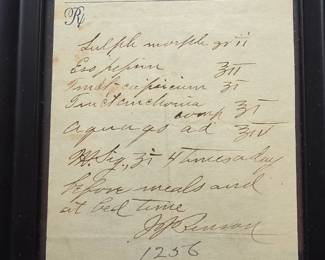 ℞
Sulph morph gr ii
Ess pepsin ʒii
Tinct capsicum ʒi
Tinct cinchona
comp ʒi
aqua qs ad ʒiv
M. Sig. ʒi 4 times a day
before meals and
at bed time
Benson
1256